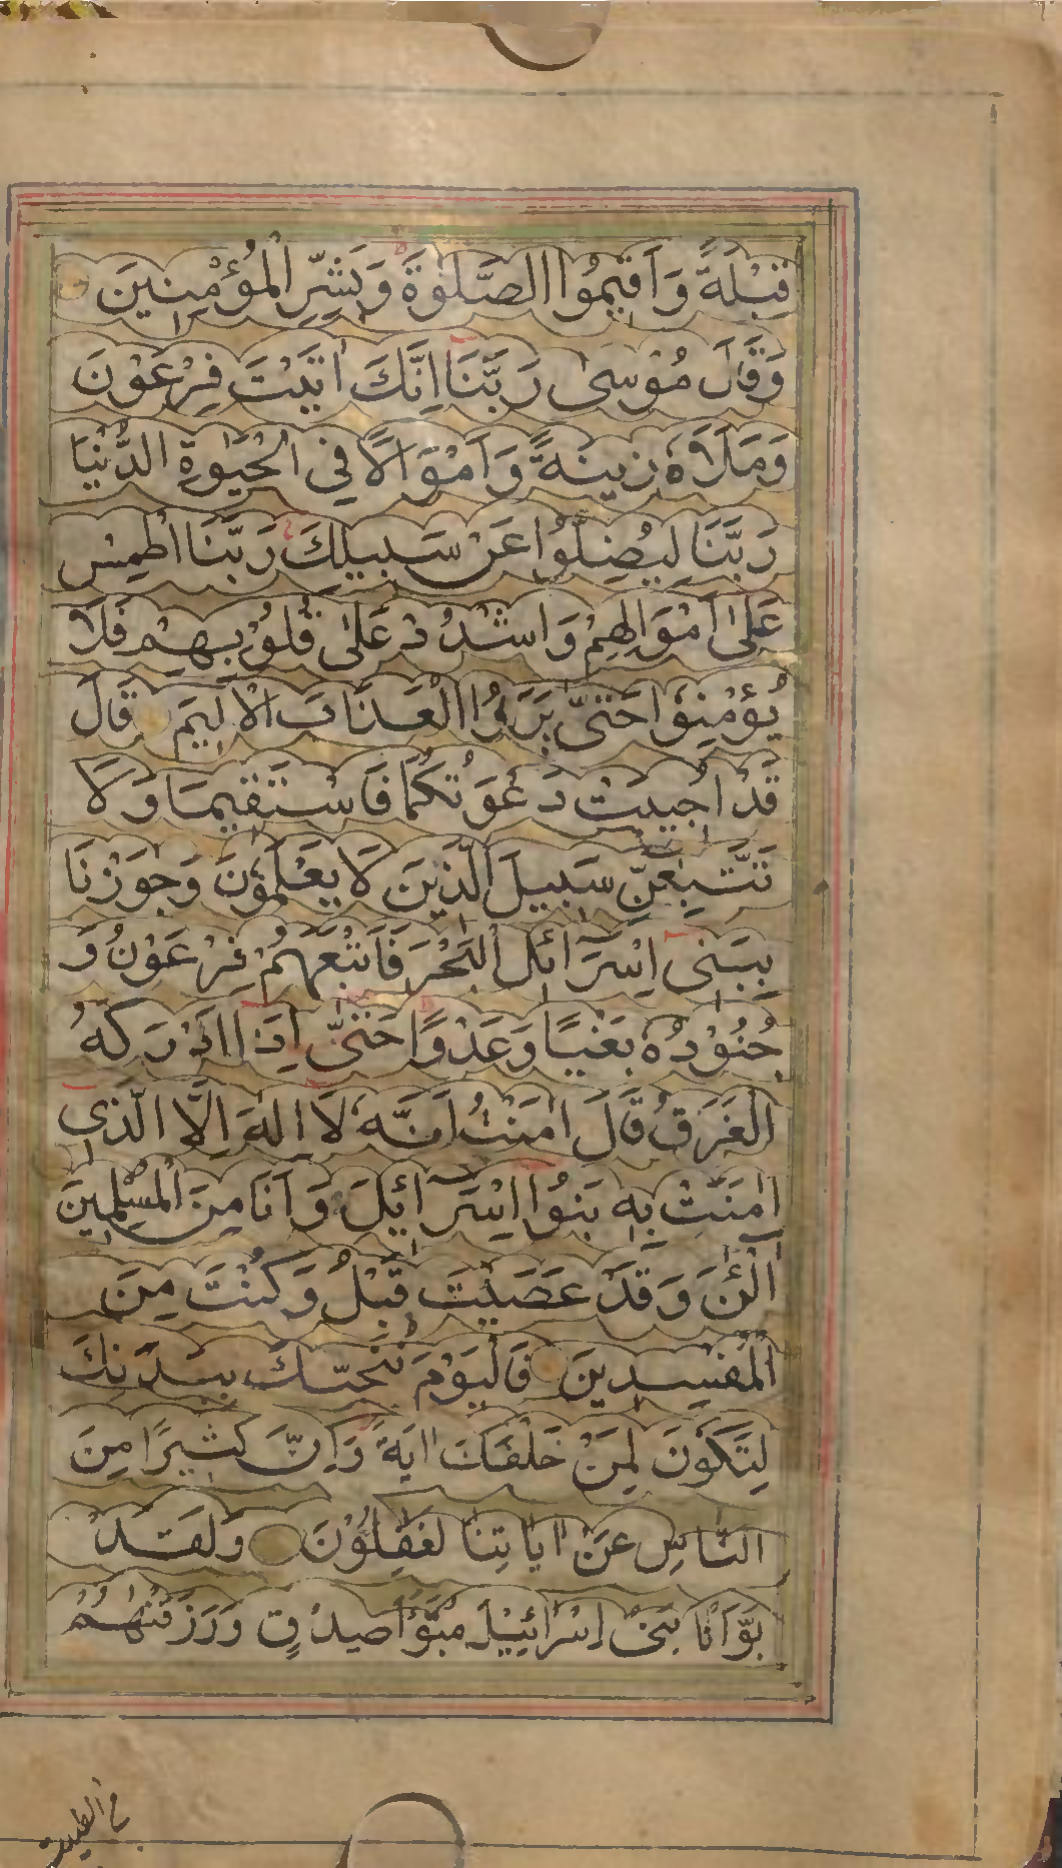 قِبْلَةً وَاَقِيمُوا الصَّلٰوةَ وَبَشِّرِ الْمُؤْمِنِينَ
وَقَالَ مُوْسىٰ رَبَّنَا اِنَّكَ اٰتَيْتَ فِرْعَوْنَ
وَمَلَاَهٗ زِينَةً وَاَمْوَالًا فِي الْحَيٰوةِ الدُّنْيَا
رَبَّنَا لِيُضِلُّوا عَنْ سَبِيلِكَ رَبَّنَا اطْمِسْ
عَلىٰ اَمْوَالِهِمْ وَاشْدُدْ عَلىٰ قُلُوْبِهِمْ فَلَا
يُؤْمِنُوْا حَتّىٰ يَرَوُا الْعَذَابَ الْاَلِيمَ قَالَ
قَدْ اُجِيبَتْ دَعْوَتُكُمَا فَاسْتَقِيمَا وَلَا
تَتَّبِعٰنِّ سَبِيلَ الَّذِينَ لَا يَعْلَمُوْنَ وَجٰوَزْنَا
بِبَنِي اِسْرَائلَ الْبَحْرَ فَاَتْبَعَهُمْ فِرْعَوْنُ وَ
جُنُوْدُهٗ بَغْيًا وَعَدْوًا حَتّىٰ اِذَا اَدْرَكَهُ
الْغَرَقُ قَالَ اٰمَنْتُ اَنَّهٗ لَا اِلٰهَ اِلَّا الَّذِي
اٰمَنَتْ بِهٖ بَنُوْا اِسْرَآئِلَ وَاَنَا مِنَ الْمُسْلِمِينَ
آلْئٰنَ وَقَدْ عَصَيْتَ قَبْلُ وَكُنْتَ مِنَ
الْمُفْسِدِينَ فَالْيَوْمَ نُنَجِّيكَ بِبَدَنِكَ
لِتَكُوْنَ لِمَنْ خَلْفَكَ اٰيَةً وَاِنَّ كَثِيرًا مِنَ
النَّاسِ عَنْ اٰيَاتِنَا لَغٰفِلُوْنَ وَلَقَدْ
بَوَّاْنَا بَنِي اِسْرَائِيْلَ مُبَوَّاَ صِدْقٍ وَرَزَقْنٰهُمْ